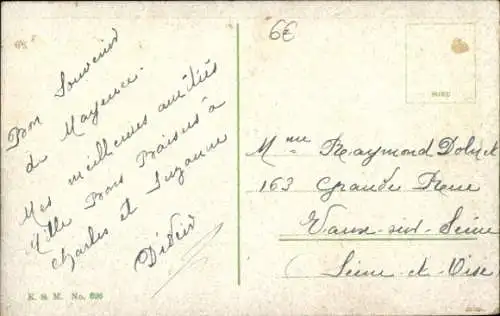 6€
Bon Souvenir
de Mayence.
Mes meilleures amitiés
Mille Bons Baisers à
Charles et Suzanne
Didier
Mme Raymond
163 Grande Rue
Vaux-sur-Seine
Seine-et-Oise
K. & M. No. 696